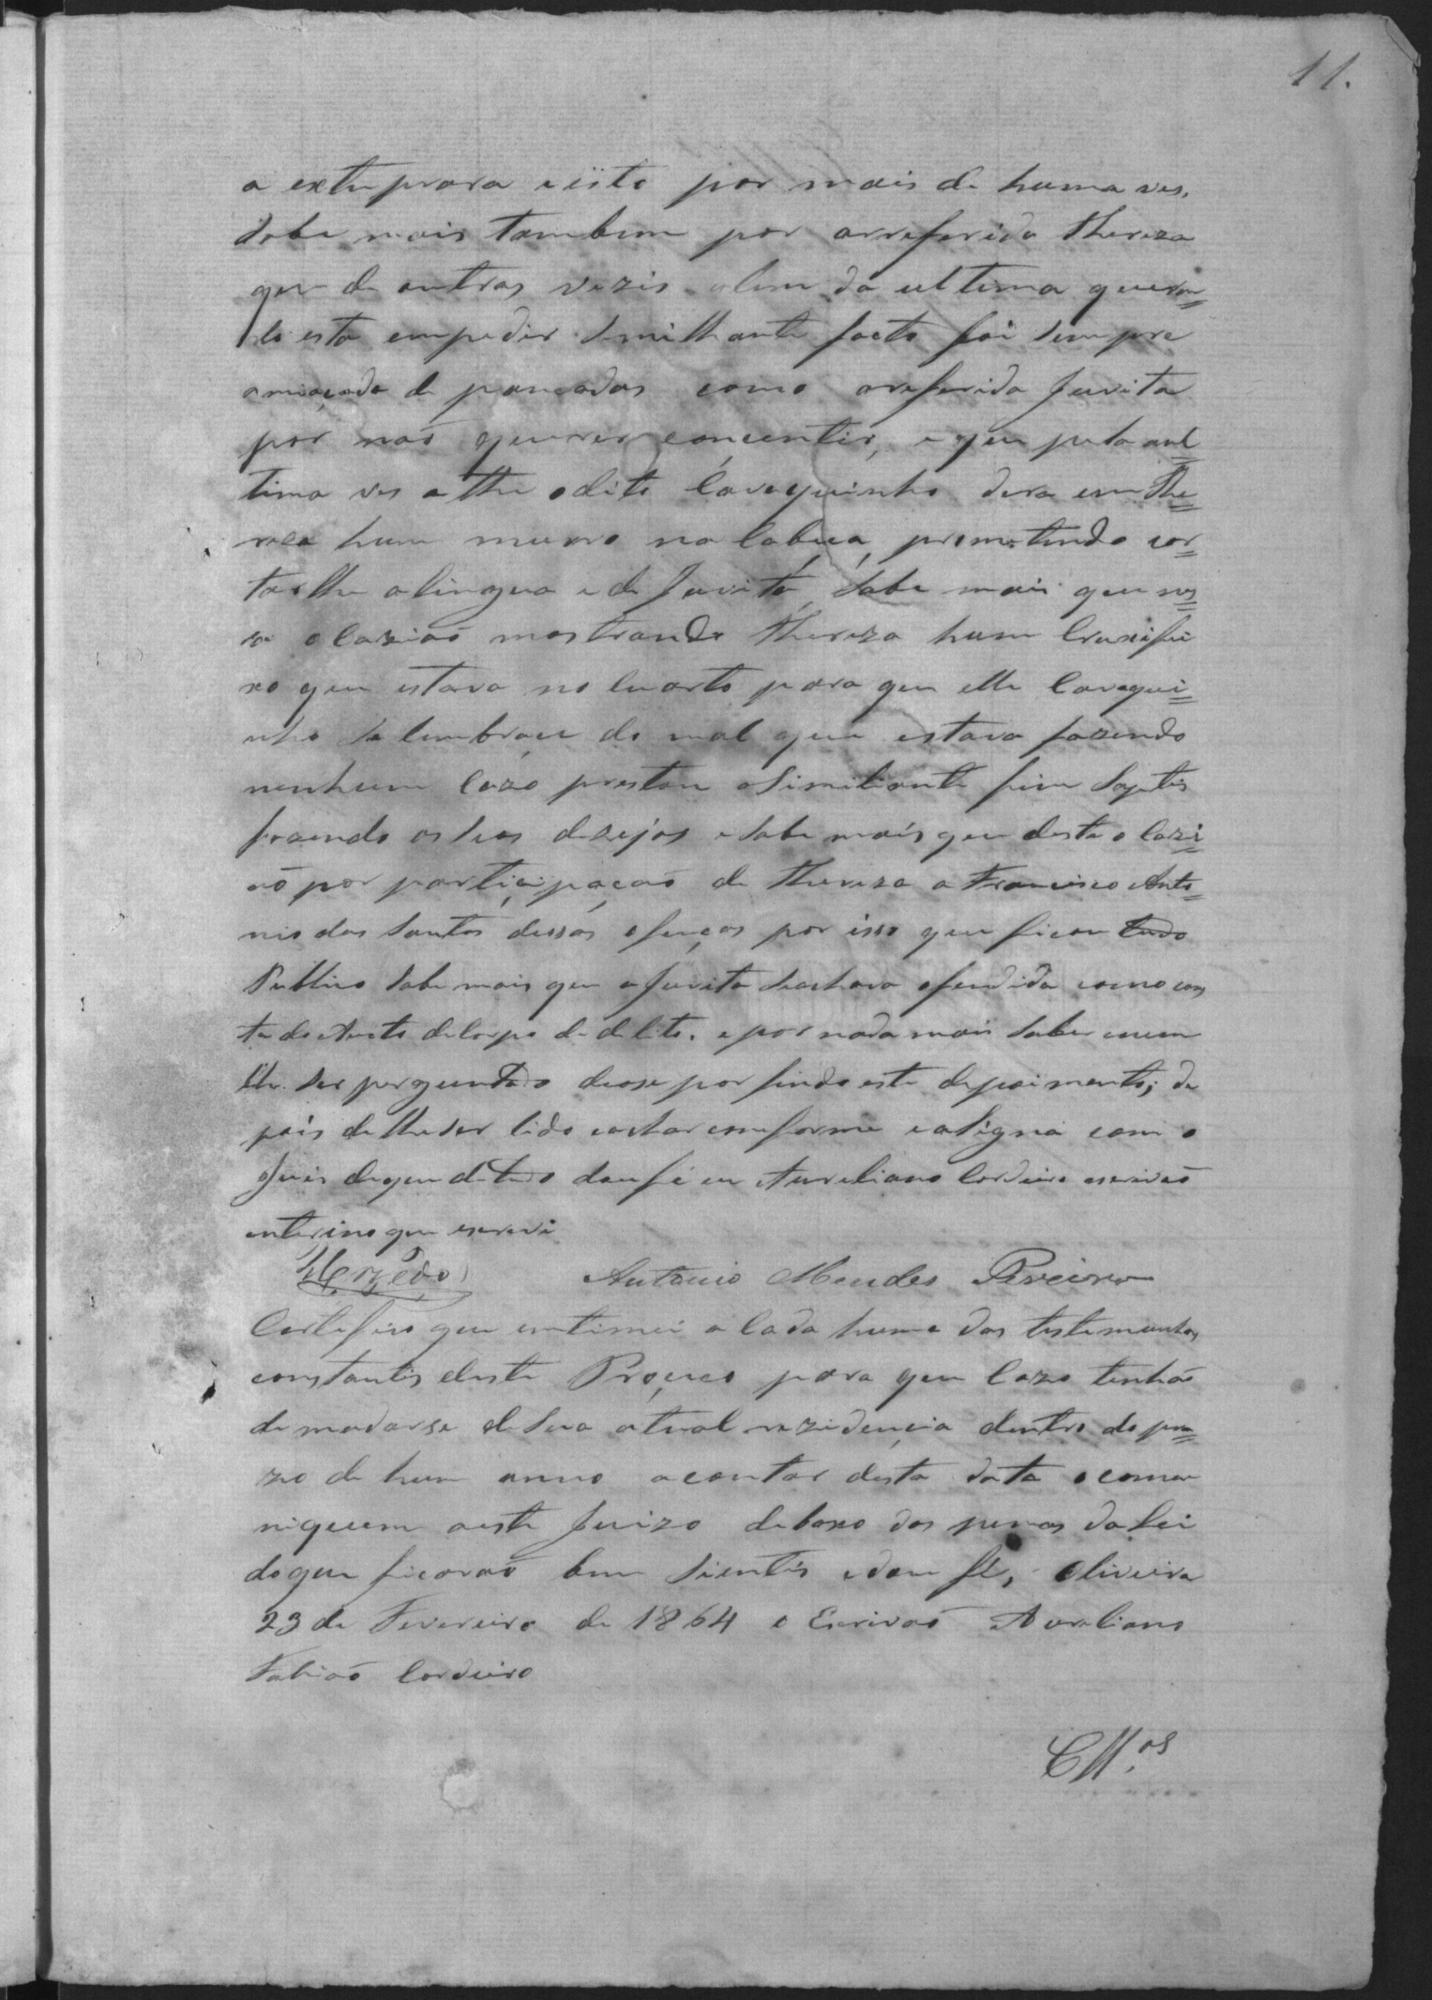 11.
a extuprara e iisto por mais de huma ves,
Sabe mais tambem por arreferida Thereza
que de outras vezis alem da ultima queren=
do esta empedir Semilhante facto foi Sempre
amiaçada de pancadas como areferida Juvita
por naõ querer conçentir, e que pela aul=
tima ves athe o dito Cavaquinho dera em The=
reza hum murro na Cabeça, prometendo cor=
tarlhe a lingua e de Juvita, Sabe mais que nes=
sa ocaziaõ mostrando Thereza hum Cruxifi
xo que estava no Cuarto para que elle Cavaqui=
nho Se lembrace do mal que estava fazendo
nenhum Cazo prestou aSimilhante fim Sastis
fazendo os Seos dezejos e Sabe mais que desta ocazi=
aõ por partiçipaçaõ de Thereza a Francisco Anto=
nio dos Santos dessas ofenças por isso que ficou tudo
Publico Sabe mais que a Juvita Seachava ofendida como cons
ta do Auto de Corpo de delito. e por nada mais Saber enem
lhe Ser perguntado deose por findo este depoimento; de
pois de lheser lido eachar comforme eaSigna com o
Juis doque detudo doufé eu Aureliano Cordeiro escrivaõ
enterino que escrevi
Azêdo Antonio Mendes Pereira
Certefico que emtimei a Cada huma das testemunhas
constantis deste Proçeço para que Cazo tenhaõ
de mudarse de Sua atual rezidençia dentro do pra=
zo de hum anno acontar desta data ocomu
niquem aeste Juizo debaxo das penas da Lei
doque ficaraõ bem Sientis edou fé, Oliveira
23 de Fevereiro de 1864 o Escrivaõ Aureliano
Fabiaõ Cordeiro
Cllos